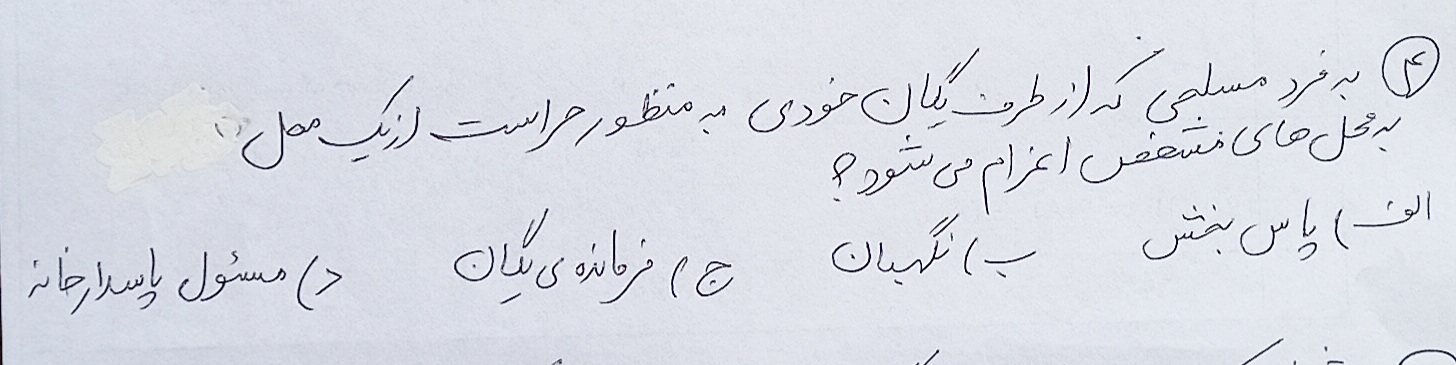 ۴ به فرد مسلحی که از طرف یگان خودی به منظور حراست از یک محل
به محل های مشخص اعزام می شود؟
الف) پاس بخش ب) نگهبان ج) فرمانده ی یگان د) مسئول پاسدارخانه